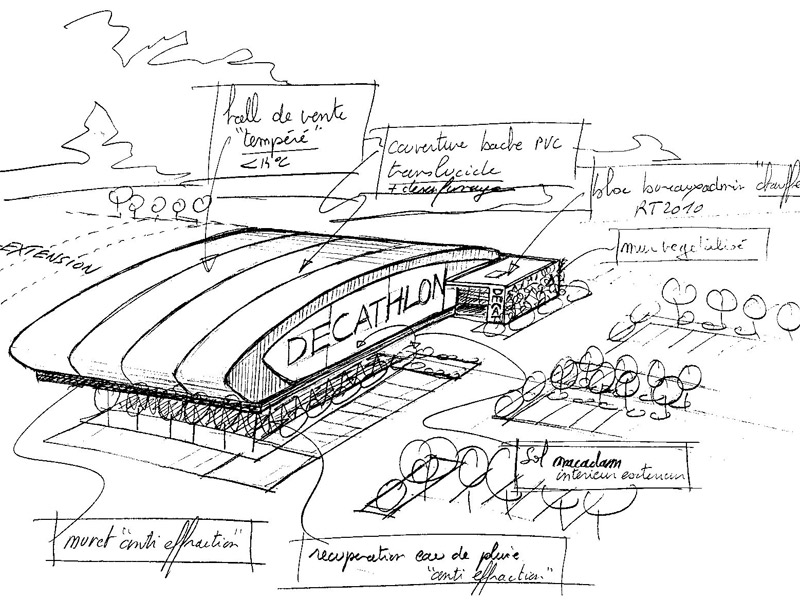 hall de vente
"tempéré"
couverture bache PVC
translucide
bloc bureaux admin "chauffé
RT2010
mur vegetalisé
EXTENSION
DECATHLON
DECAT
Sol macadam
interieur exterieur
muret "anti effraction"
recuperation eau de pluie
"anti effraction"